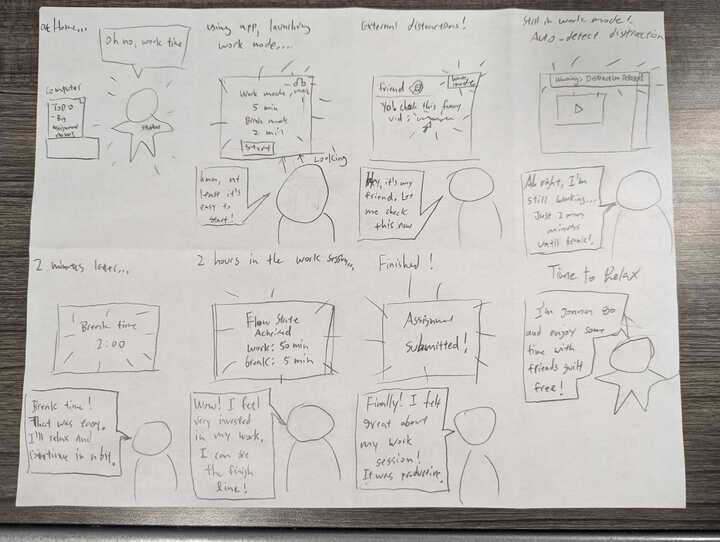 At Home...
Oh no, work time
Computer
TODO
- Big
Assignment
using app, launching
work mode....
Work mode,
5 min
Break mode
2 min
Start
Looking
hmm, at
least it's
easy to
start!
External distractions!
friend
work
mode
Yo! Check this funny
vid:
Hey, it's my
friend. Let
me check
this now
Still in work mode!
Auto-detect distraction
Warning: Distraction Detected
Ah right, I'm
still working...
Just 2 more
minutes
until break!
2 minutes later...
Break time
2:00
Break time!
That was easy.
I'll relax and
continue in a bit.
2 hours in the work session...
Flow State
Achieved
work: 50 min
break: 5 min
Wow! I feel
very invested
in my work.
I can see
the finish
line!
Finished!
Assignment
Submitted!
Finally! I felt
great about
my work
session!
It was productive.
Time to Relax
I'm gonna go
and enjoy some
time with
friends guilt
free!